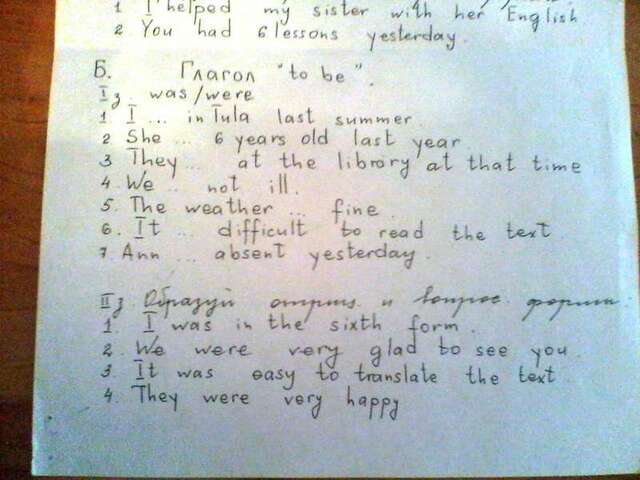 1 I helped my sister with her English
2 You had 6 lessons yesterday.
Б. Глагол "to be".
I з. was/were
1 I ... in Tula last summer.
2 She ... 6 years old last year
3 They ... at the library at that time
4. We ... not ill.
5. The weather ... fine.
6. It ... difficult to read the text.
7. Ann ... absent yesterday.
II з Образуй отриц. и вопрос. формы.
1. I was in the sixth form.
2. We were very glad to see you.
3. It was easy to translate the text
4. They were very happy